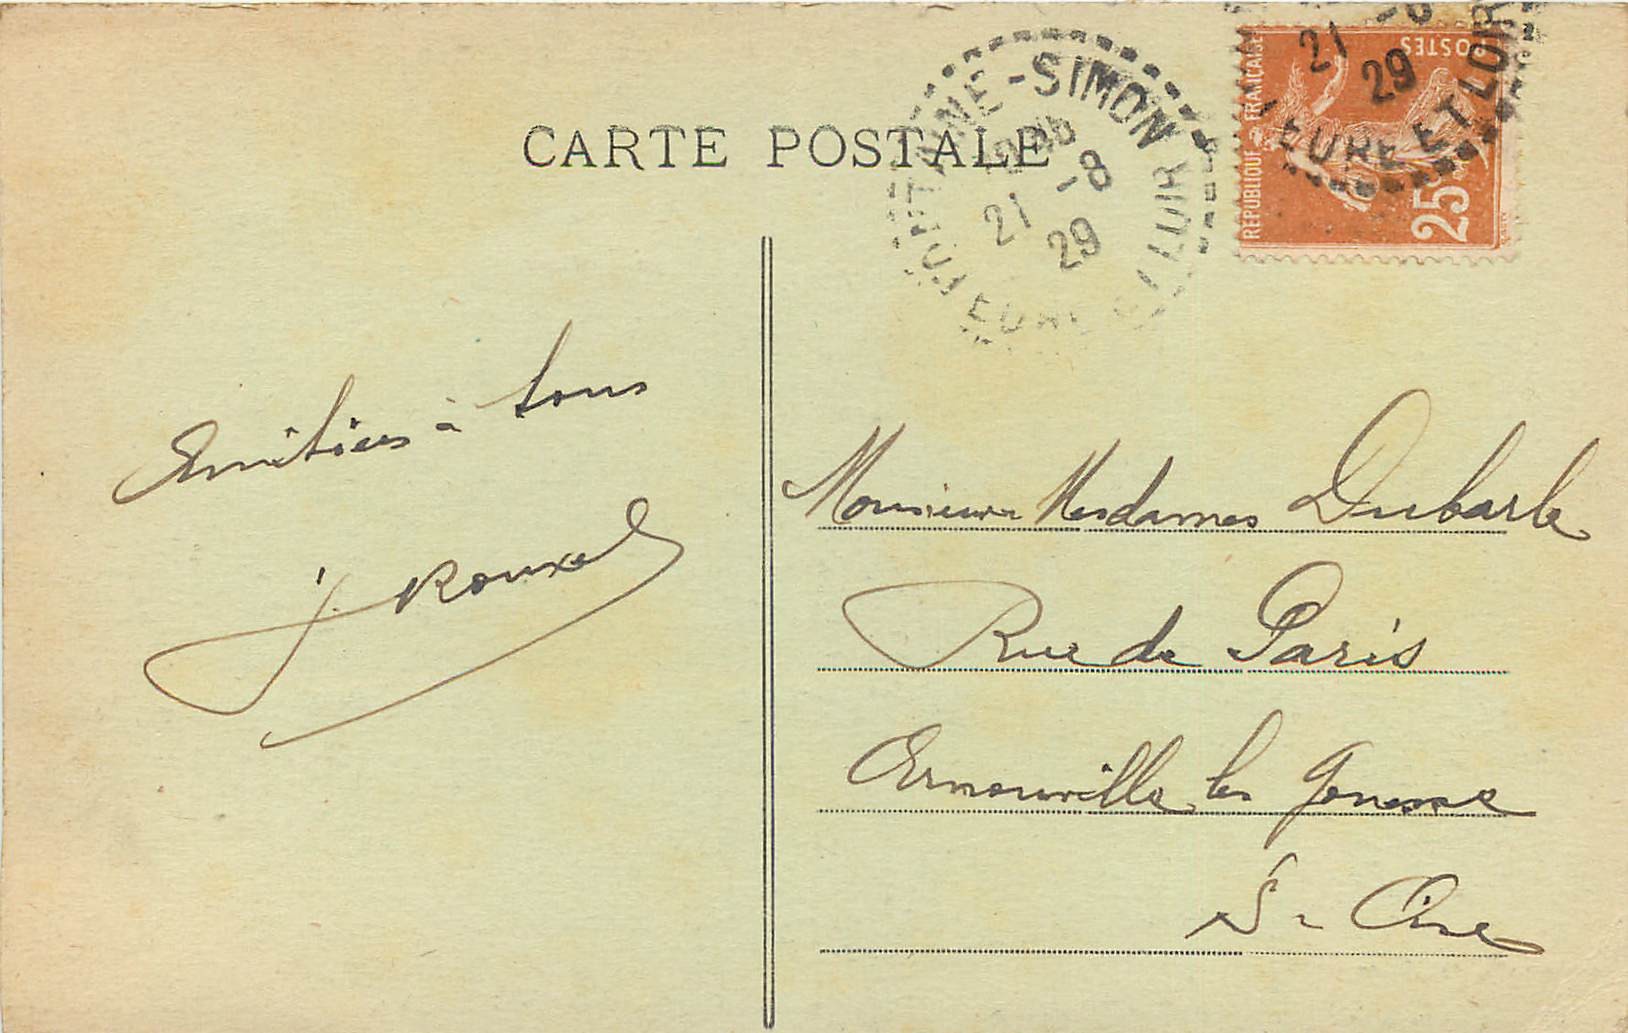 CARTE POSTALE
FONTAINE-SIMON
21 -8
29
EURE ET LOIR
21 -8
29
EURE ET LOIR
POSTES
REPUBLIQUE FRANCAISE
25c
Amitiés à tous
J. Rouxel
Monsieur Mesdames Dubarle
Rue de Paris
Arnouville les Gonesse
S - Oise